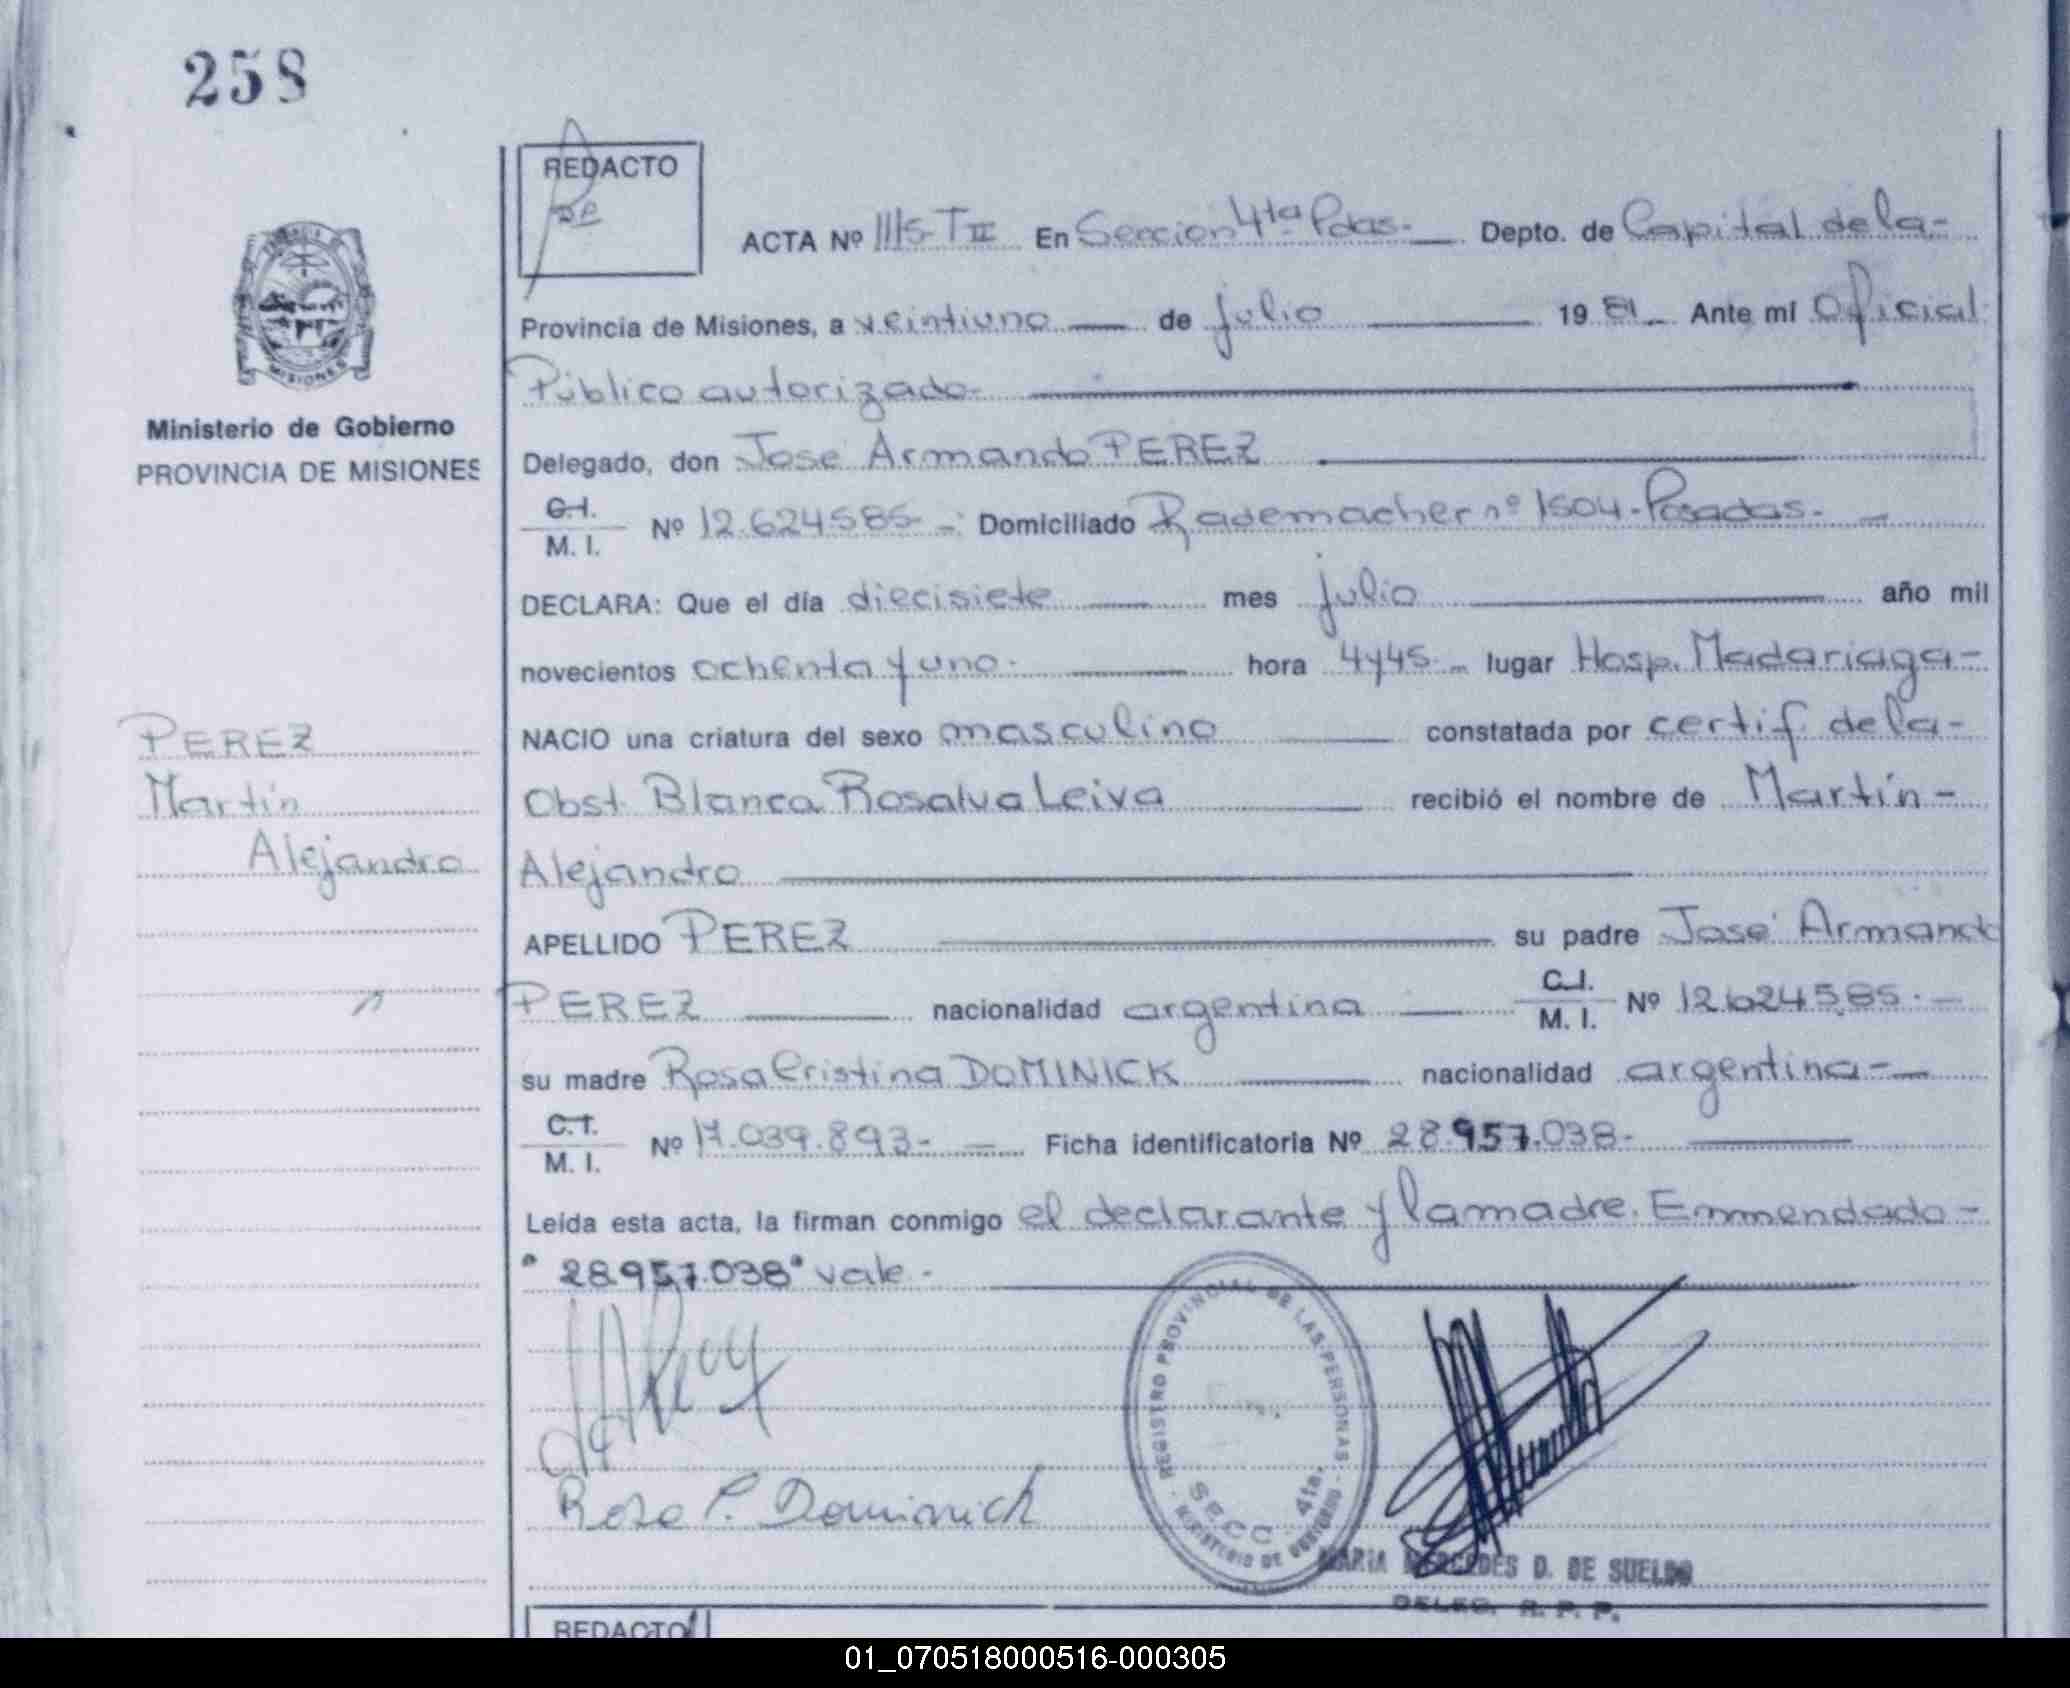 258
REDACTO
ACTA Nº 1115-TIII En Seccion 4ta Pdas.- Depto. de Capital de la-
Provincia de Misiones, a veintiuno de julio 19 81 Ante mí Oficial
Público autorizado-
Ministerio de Gobierno
PROVINCIA DE MISIONES
Delegado, don José Armando PEREZ
C.I.
M. I. Nº 12.624585- Domiciliado Rademacher nº 1504-Posadas.-
DECLARA: Que el día diecisiete mes julio año mil
novecientos ochenta y uno- hora 4y45- lugar Hosp. Madariaga-
NACIO una criatura del sexo masculino constatada por certif. de la-
Obst. Blanca Rosalva Leiva recibió el nombre de Martín-
Alejandro
PEREZ
Martín
Alejandro
APELLIDO PEREZ su padre José Armando
PEREZ nacionalidad argentina C.I.
M. I. Nº 12.624585.-
su madre Rosa Cristina DOMINICK nacionalidad argentina-
C.I.
M. I. Nº 17.039.893- Ficha identificatoria Nº 28.957.038-
Leída esta acta, la firman conmigo el declarante y la madre. Enmendado-
"28.957.038" vale-
Rosa C. Dominick
REGISTRO PROVINCIAL DE LAS PERSONAS
- MINISTERIO DE GOBIERNO -
SECC 4ta.
MARIA MERCEDES D. DE SUELDO
DELEG. R. P. P.
REDACTO
01_070518000516-000305